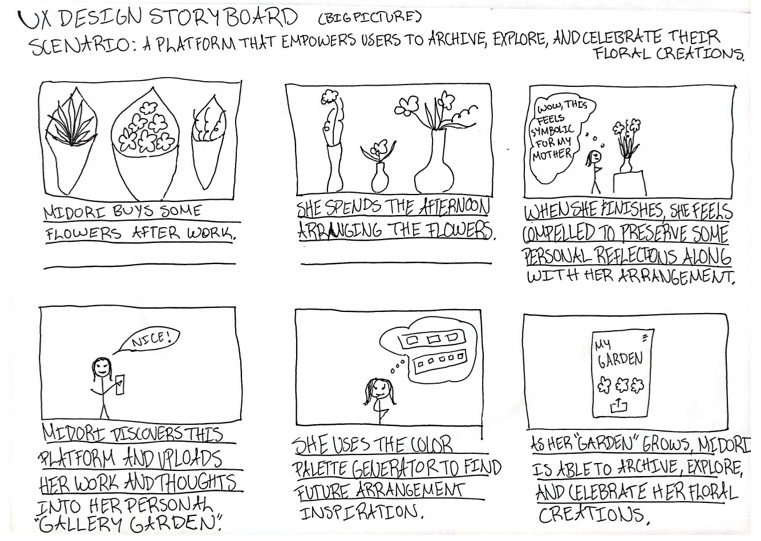 UX DESIGN STORYBOARD (BIG PICTURE)
SCENARIO: A PLATFORM THAT EMPOWERS USERS TO ARCHIVE, EXPLORE, AND CELEBRATE THEIR
FLORAL CREATIONS.
MIDORI BUYS SOME
FLOWERS AFTER WORK.
SHE SPENDS THE AFTERNOON
ARRANGING THE FLOWERS.
WOW, THIS
FEELS
SYMBOLIC
FOR MY
MOTHER
WHEN SHE FINISHES, SHE FEELS
COMPELLED TO PRESERVE SOME
PERSONAL REFLECTIONS ALONG
WITH HER ARRANGEMENT.
NICE!
MIDORI DISCOVERS THIS
PLATFORM AND UPLOADS
HER WORK AND THOUGHTS
INTO HER PERSONAL
"GALLERY GARDEN".
SHE USES THE COLOR
PALETTE GENERATOR TO FIND
FUTURE ARRANGEMENT
INSPIRATION.
MY
GARDEN
AS HER "GARDEN" GROWS, MIDORI
IS ABLE TO ARCHIVE, EXPLORE,
AND CELEBRATE HER FLORAL
CREATIONS.